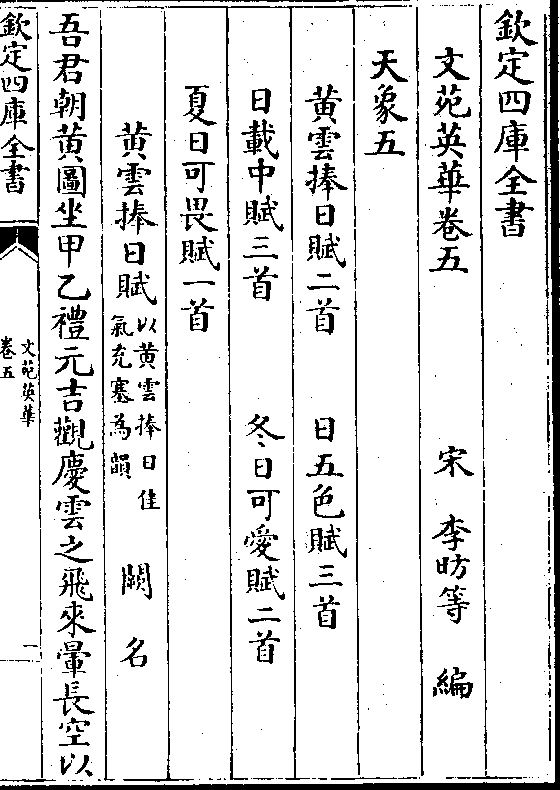 欽定四庫全書
文苑英華卷五　宋　李昉等　編
天象五
黄雲捧日賦二首　日五色賦三首
日載中賦三首　冬日可愛賦二首
夏日可畏賦一首
黄雲捧日賦以黄雲捧日佳氣充塞為韻　闕名
吾君朝黄圖坐甲乙禮元吉觀慶雲之飛來暈長空以
欽定四庫全書
文苑英華
卷五
一